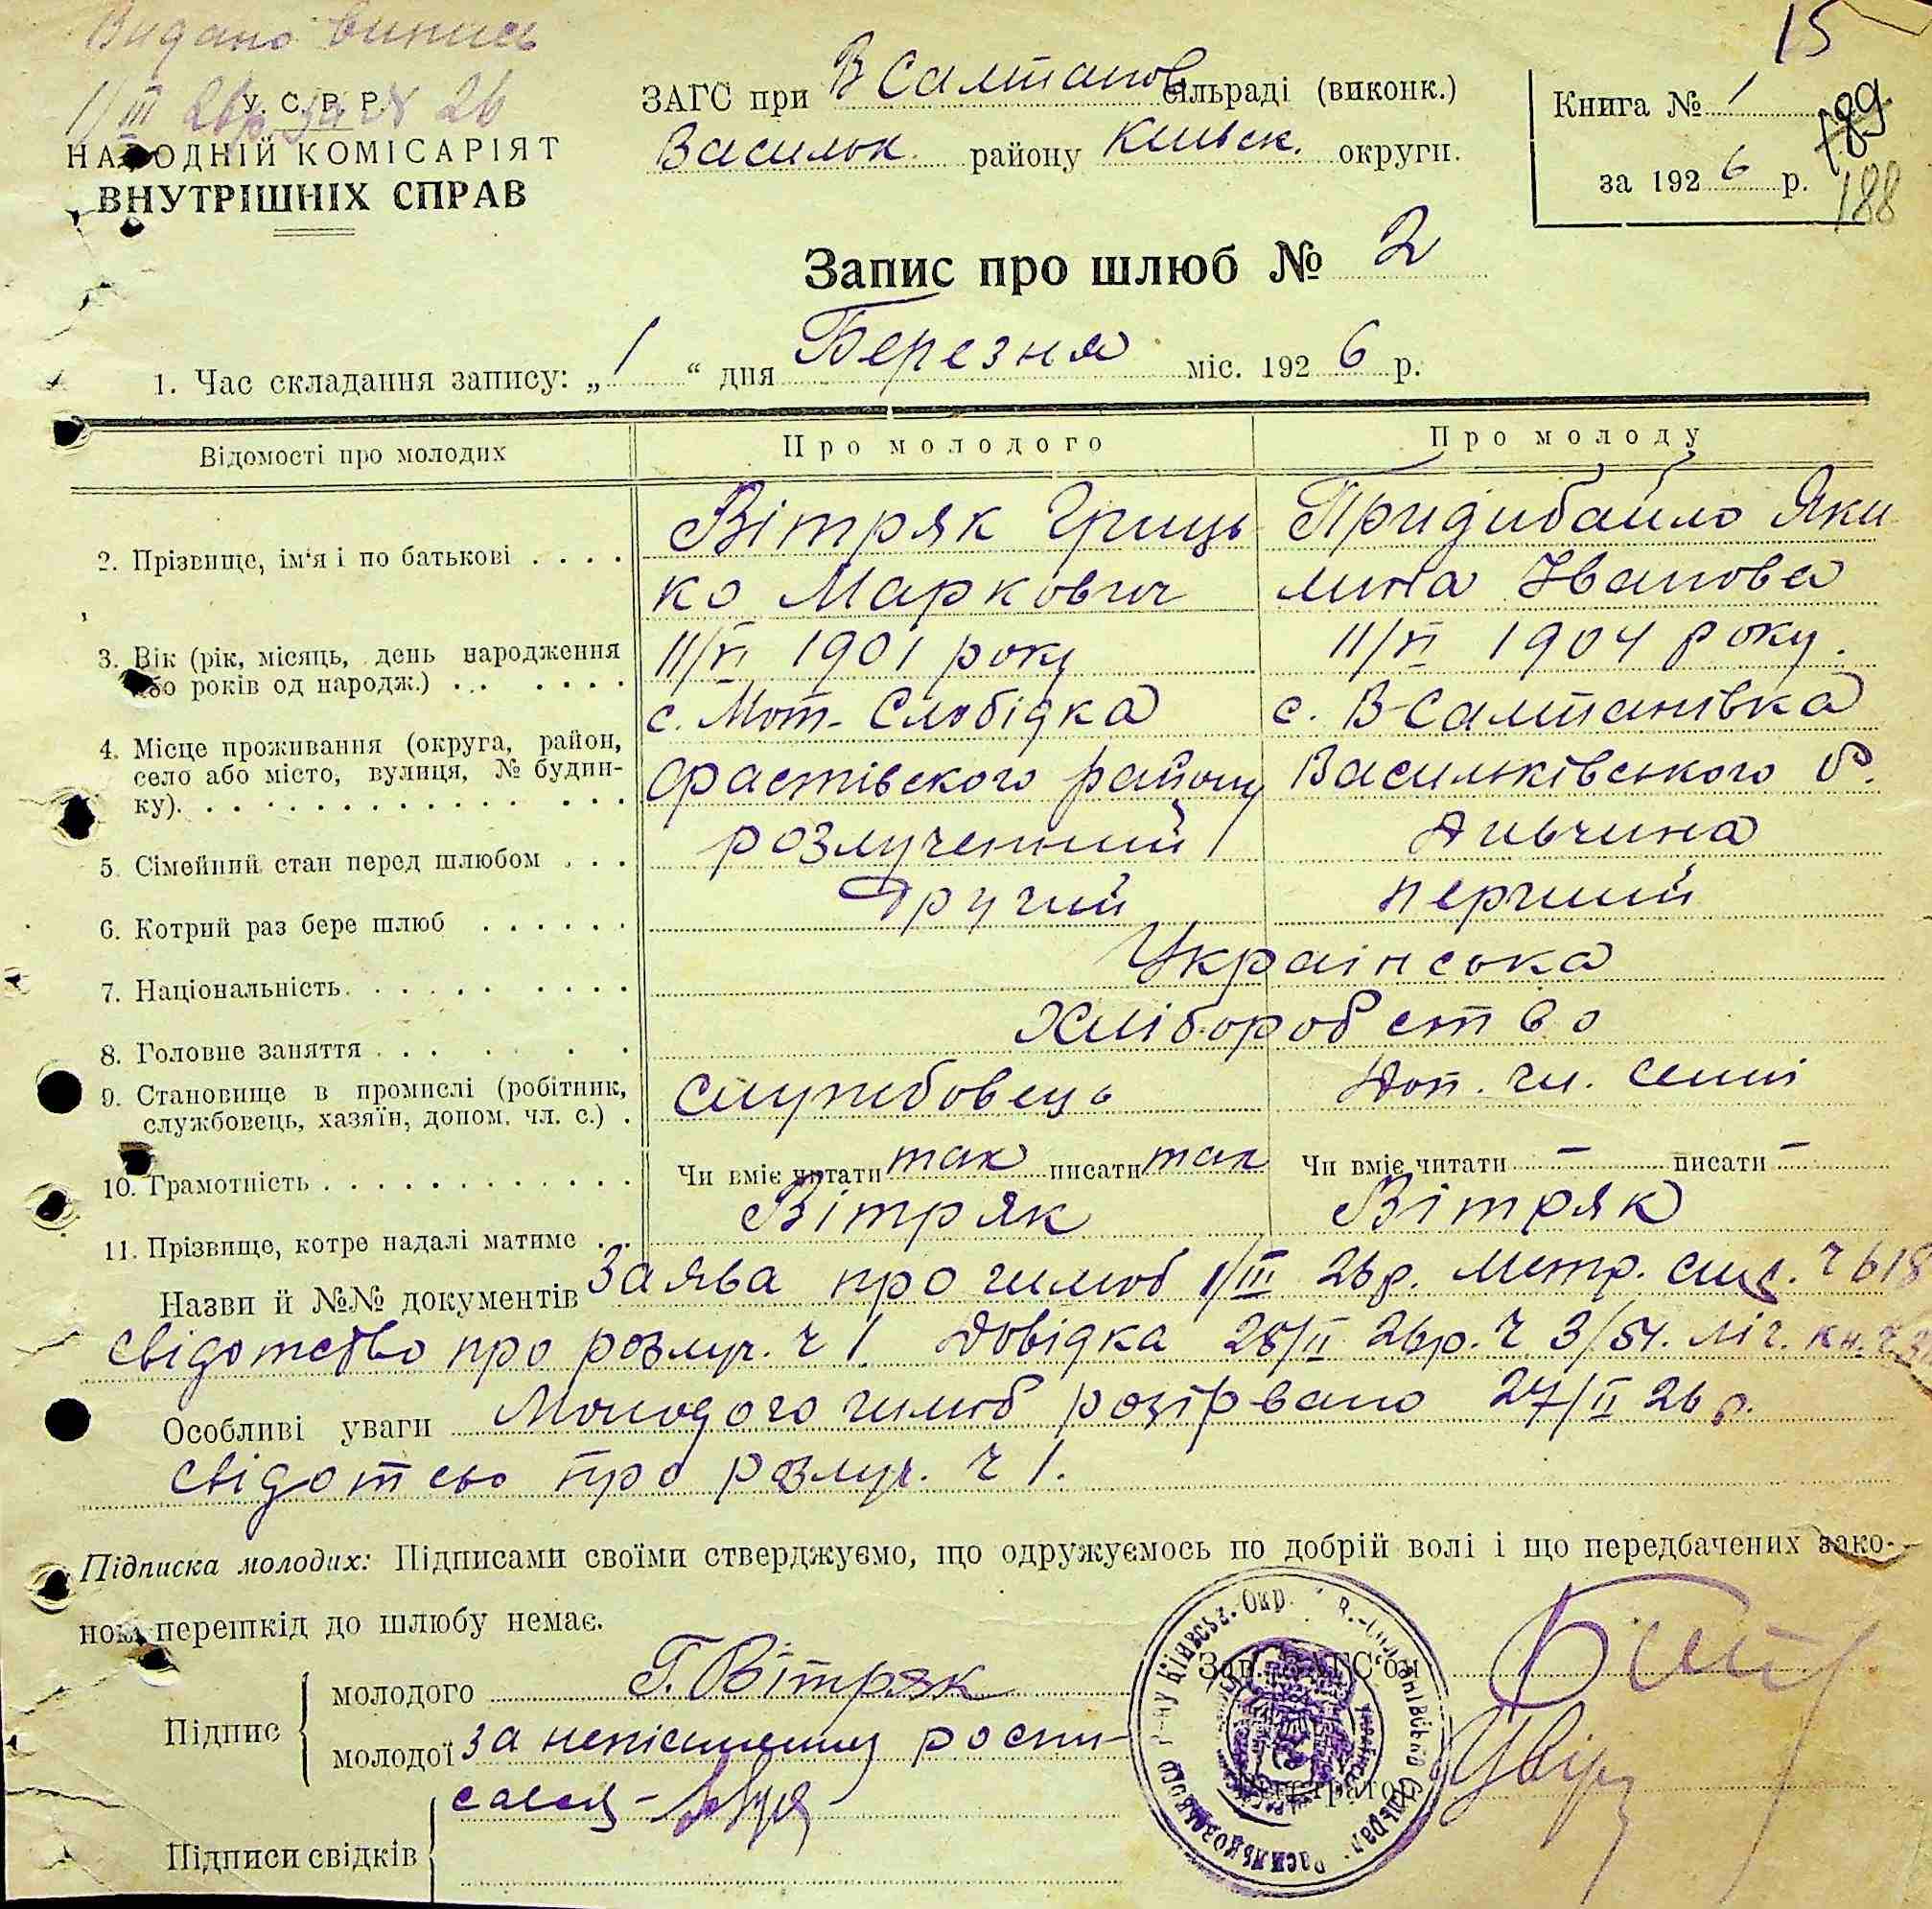 15
Видано випись
1/III 26р за № 26
У. С. Р. Р.
НАРОДНІЙ КОМІСАРІЯТ
ВНУТРІШНІХ СПРАВ
ЗАГС при В Салтанов сільраді (виконк.)
Васильк. району Київськ. округи.
Книга № 1
189
за 1926 р.
188
Запис про шлюб № 2
1. Час складання запису: „ 1 “ дня Березня міс. 1926 р.
Відомості про молодих Про молодого Про молоду
2. Прізвище, ім'я і по батькові . . . . Вітряк Гриць Придибайло Яки
ко Маркович лина Іванова
3. Вік (рік, місяць, день народження 11/VI 1901 року 11/VI 1904 року.
або років од народж.) . . . . . . .
с. Мот-Слобідка с. В-Салтанівка
4. Місце проживання (округа, район,
село або місто, вулиця, № будин- Фастівского району Васильківського р.
ку). . . . . . . . . . . . . . . .
5. Сімейний стан перед шлюбом . . . розлученний Дивчина
6. Котрий раз бере шлюб . . . . . . Другий перчий
7. Національність. . . . . . . . . . Українська
8. Головне заняття . . . . . . . Хліборобство
9. Становище в промислі (робітник, службовець Доп. чл. семі
службовець, хазяїн, допом. чл. с.) .
10. Грамотність . . . . . . . . . . . . Чи вміє читати так писати так Чи вміє читати – писати –
11. Прізвище, котре надалі матиме . . Вітряк Вітряк
Назви й №№ документів Заява про шлюб 1/III 26р. Метр. ч 618
Свідотство про розлуч. ч 1 Довідка 28/II 26р. ч 3/54. кн.
Особливі уваги Молодого шлюб розірвано 27/II 26 р.
Свідотсво про розлуч. ч 1.
Підписка молодих: Підписами своїми стверджуємо, що одружуємось по добрій волі і що передбачених зако-
ном перешкід до шлюбу немає.
Зав. ЗАГС'ом
Підпис
молодого Г. Вітряк
молодої за неписьменну роспи-
Реєстратор
сався
Підписи свідків